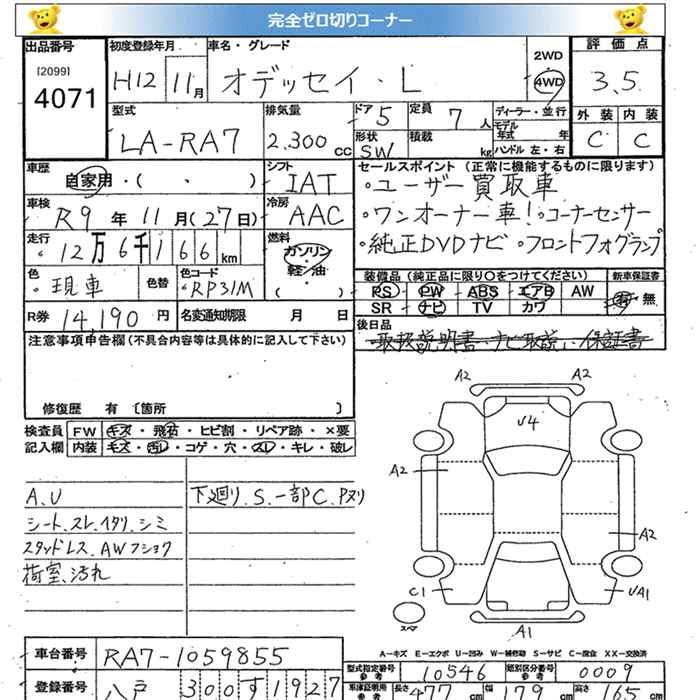 完全ゼロ切りコーナー
出品番号 初度登録年月 車名・グレード 2WD 評価点
[2099] 4071 H12年 11月 オデッセイ・L 4WD 3.5
型式 排気量 ドア 5 定員 7人 ディーラー・並行 外装 内装
LA-RA7 2.300cc 形状 SW 積載 kg モデル年式 年 ハンドル 左・右 C C
車歴 シフト セールスポイント(正常に機能するものに限ります)
自家用・( ・ ) IAT ・ユーザー買取車
車検 冷房
R9年11月(27日) AAC ・ワンオーナー車! ・コーナーセンサー
走行 燃料
12万6千166km ガソリン ・純正DVDナビ ・フロントフォグランプ
軽油
色 色替 色コード 装備品(純正品に限り○をつけてください) 新車保証書
現車 RP31M ( ) PS PW ABS エアB AW 有・無
SR ナビ TV カワ
R券 14,190円 名変通知期限 月 日 後日品
取扱説明書・ナビ取説、保証書
注意事項申告欄(不具合内容等は具体的に記入して下さい)
修復歴 有 〔箇所 〕
検査員 FW キズ・飛石・ヒビ割・リペア跡・×要
記入欄 内装 キズ・汚レ・コゲ・穴・スレ・キレ・破レ
A2 A2
U4
A2
A2
C1 UA1
スペア
A1
A.U 下廻り.S.一部C.Pヌリ
シート.スレ.イタリ.シミ
スタッドレス.AWフショク
荷室.汚れ
A-キズ E-エクボ U-凹み W-補修跡 S-サビ C-腐食 XX-交換済
車台番号 RA7-1059855 型式指定番号 参考 10546 類別区分番号 参考 0009
登録番号 八戸 300す1927 車庫証明用 参考 長さ 477cm 幅 179cm 高さ 165cm